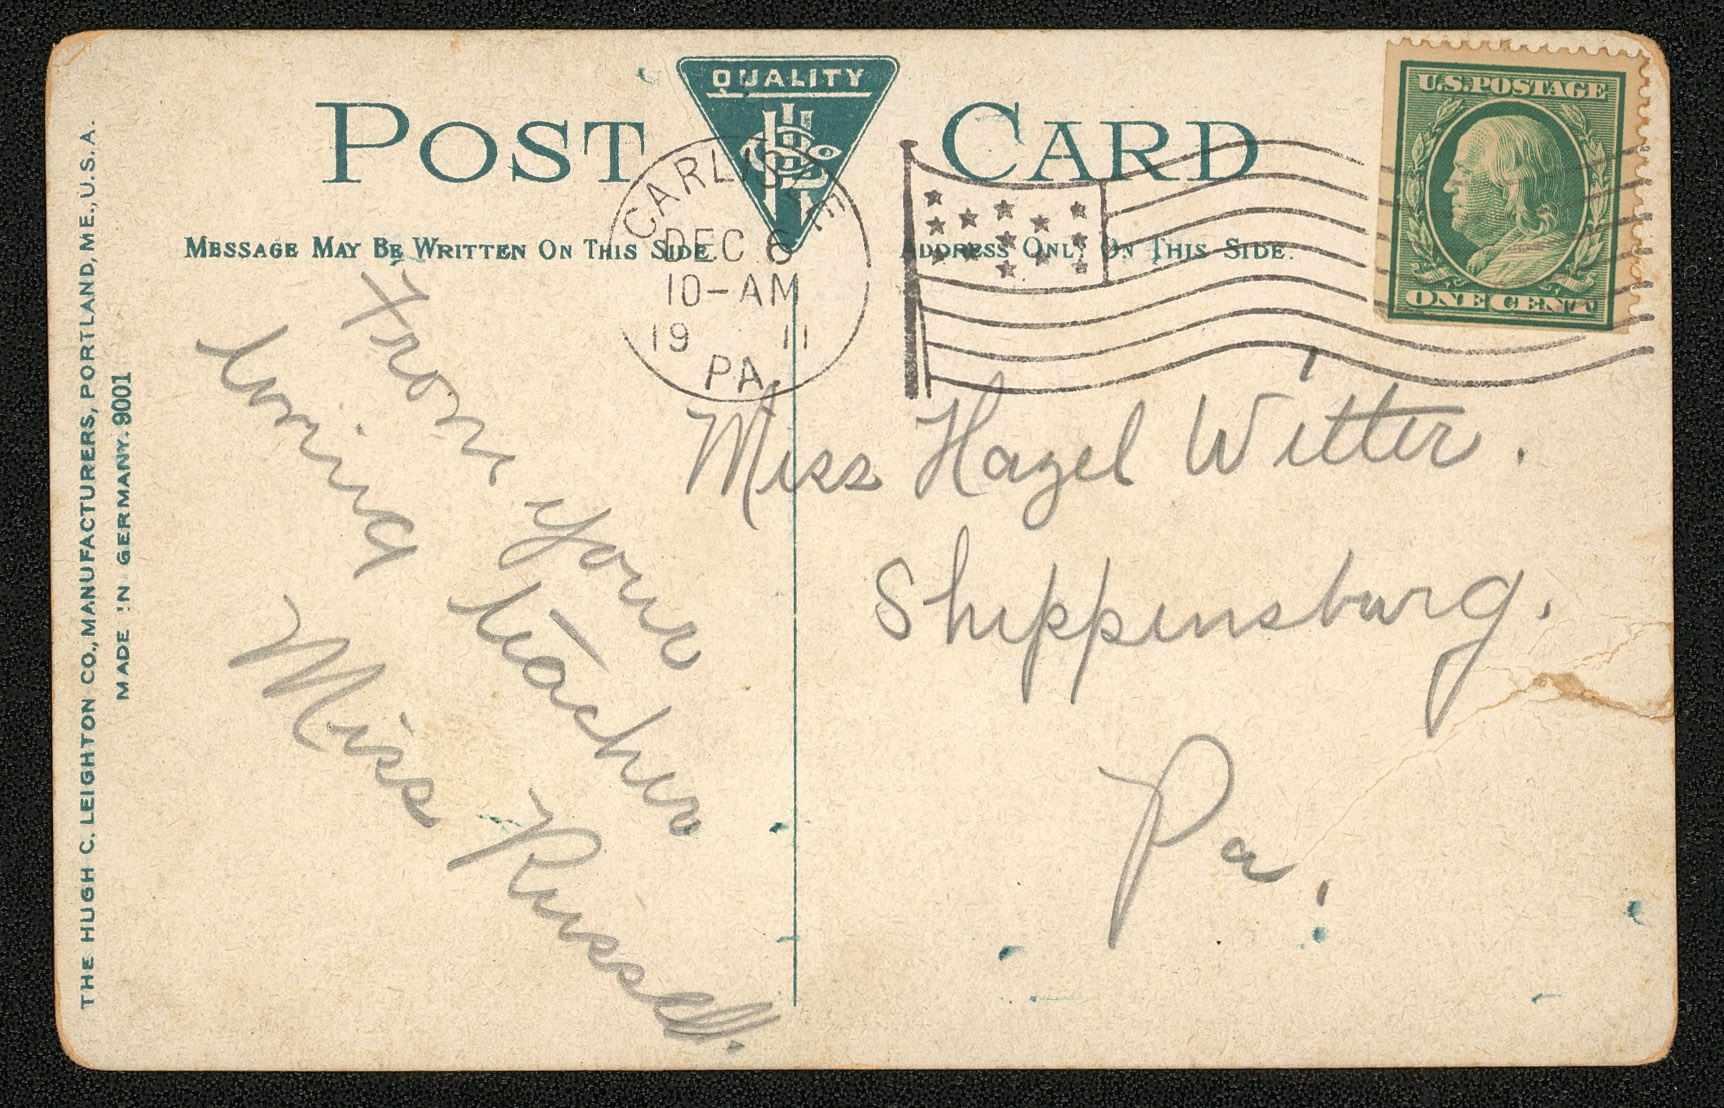 THE HUGH C. LEIGHTON CO., MANUFACTURERS, PORTLAND, ME., U.S.A.
MADE IN GERMANY. 9001
POST CARD
QUALITY
MESSAGE MAY BE WRITTEN ON THIS SIDE.
ADDRESS ONLY ON THIS SIDE.
CARLISLE
DEC 6
10-AM
19 11
PA
U.S. POSTAGE
ONE CENT
From your
loving teacher
Miss Russell.
Miss Hazel Witter.
Shippensburg.
Pa.